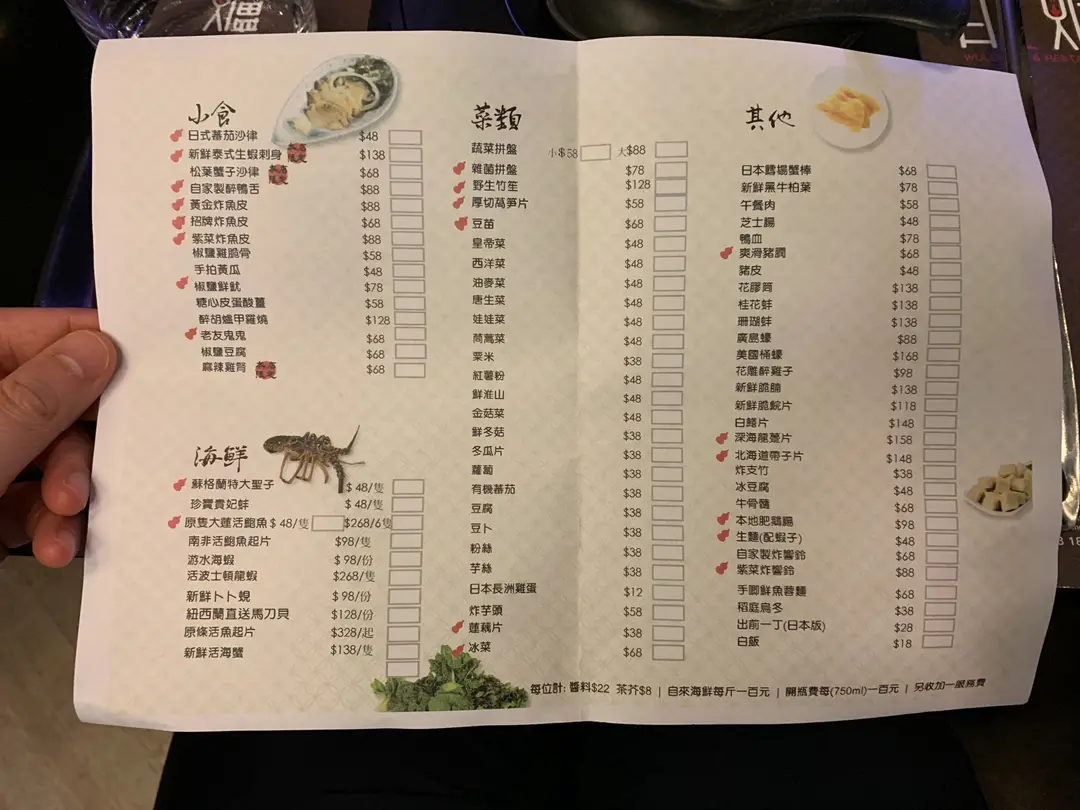 小食
日式蕃茄沙律 $48
新鮮泰式生蝦刺身 $138
松葉蟹子沙律 $68
自家製醉鴨舌 $88
黃金炸魚皮 $88
招牌炸魚皮 $68
紫菜炸魚皮 $88
椒鹽雞脆骨 $58
手拍黃瓜 $48
椒鹽鮮魷 $78
糖心皮蛋酸薑 $58
醉胡爐甲羅燒 $128
老友鬼鬼 $68
椒鹽豆腐 $68
麻辣雞腎 $68
海鮮
蘇格蘭特大聖子 $48/隻
珍寶貴妃蚌 $48/隻
原隻大蓮活鮑魚 $48/隻 $268/6隻
南非活鮑魚起片 $98/隻
游水海蝦 $98/份
活波士頓龍蝦 $268/隻
新鮮卜卜蜆 $98/份
紐西蘭直送馬刀貝 $128/份
原條活魚起片 $328/起
新鮮活海蟹 $138/隻
菜類
蔬菜拼盤 小$58 大$88
雜菌拼盤 $78
野生竹笙 $128
厚切萵笋片 $58
豆苗 $68
皇帝菜 $48
西洋菜 $48
油麥菜 $48
唐生菜 $48
娃娃菜 $48
茼蒿菜 $48
粟米 $38
紅薯粉 $48
鮮淮山 $48
金菇菜 $48
鮮冬菇 $38
冬瓜片 $38
蘿蔔 $38
有機蕃茄 $38
豆腐 $38
豆卜 $38
粉絲 $38
芋絲 $38
日本長洲雞蛋 $12
炸芋頭 $58
蓮藕片 $38
冰菜 $68
其他
日本鱈場蟹棒 $68
新鮮黑牛柏葉 $78
午餐肉 $58
芝士腸 $48
鴨血 $78
爽滑豬膶 $68
豬皮 $48
花膠筒 $138
桂花蚌 $138
珊瑚蚌 $138
廣島蠔 $88
美國桶蠔 $168
花雕醉雞子 $98
新鮮脆腩 $138
新鮮脆鯇片 $118
白鱔片 $148
深海龍躉片 $158
北海道帶子片 $148
炸支竹 $38
冰豆腐 $48
牛骨髓 $68
本地肥鵝腸 $98
生麵(配蝦子) $48
自家製炸響鈴 $68
紫菜炸響鈴 $88
手唧鮮魚蓉麵 $68
稻庭烏冬 $38
出前一丁(日本版) $28
白飯 $18
每位計: 醬料$22 茶芥$8 | 自來海鮮每斤一百元 | 開瓶費每(750ml)一百元 | 另收加一服務費